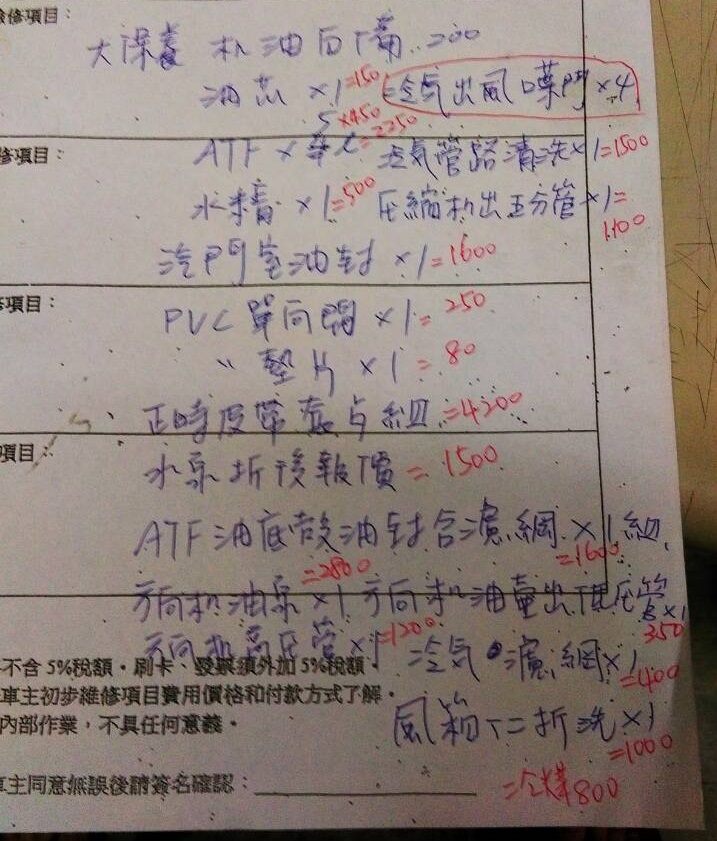 檢修項目：
大保養 机油自備 200
油芯 ×1=150 冷気出風口葉片 ×4
5×450
修項目： ATF × =2250 冷気管路清洗×1=1500
水精 ×1=500 圧縮机出五分管×1=
1100
汽門室油封 ×1=1600
修項目： PVC 單向閥 ×1=250
〃 墊片 ×1=80
正時皮帶套 組=4200
項目： 水泵折後報價=1500
ATF油底殼油封含濾網×1組
=1600
=2800
方向机油泵×1 方向机油壷出低圧管
×1
350
方向机高圧管×1=1200 冷気濾網×1
=400
不含 5%稅額・刷卡、發票須外加 5%稅額
車主初步維修項目費用價格和付款方式了解。
內部作業，不具任何意義。
風箱下二折洗×1
=1000
車主同意無誤後請簽名確認：
=冷媒800